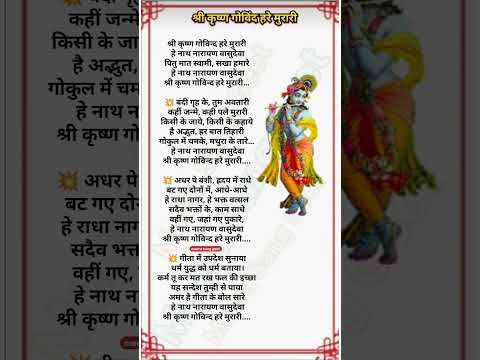 श्री कृष्ण गोविंद हरे मुरारी
श्री कृष्ण गोविन्द हरे मुरारी
हे नाथ नारायण वासुदेवा
पितु मात स्वामी, सखा हमारे
हे नाथ नारायण वासुदेवा
श्री कृष्ण गोविन्द हरे मुरारी...
💥 बंदी गृह के, तुम अवतारी
कहीं जन्मे, कही पले मुरारी
किसी के जाये, किसी के कहाये
है अद्भुत, हर बात तिहारी
गोकुल में चमके, मथुरा के तारे...
हे नाथ नारायण वासुदेवा
श्री कृष्ण गोविन्द हरे मुरारी....
💥 अधर पे बंशी, ह्रदय में राधे
बट गए दोनों में, आधे-आधे
हे राधा नागर, हे भक्त वत्सल
सदैव भक्तों के, काम साधे
वहीं गए, जहां गए पुकारे,
हे नाथ नारायण वासुदेवा
श्री कृष्ण गोविन्द हरे मुरारी....
💥 गीता में उपदेश सुनाया
धर्म युद्ध को धर्म बताया।
कर्म तू कर मत रख फल की इच्छा
यह सन्देश तुम्ही से पाया
अमर है गीता के बोल सारे
हे नाथ नारायण वासुदेवा
श्री कृष्ण गोविन्द हरे मुरारी....